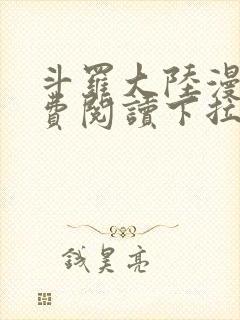 斗羅大陸漫
費閱讀下拉
钱昊亮